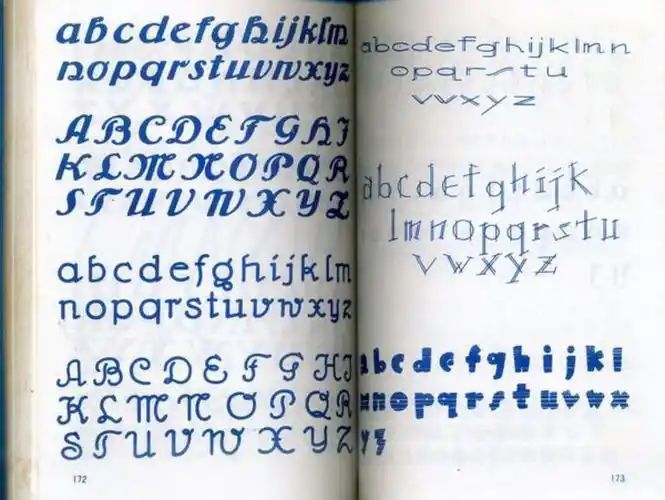 abcdefghijklm
nopqrstuvwxyz
ABCDEFGHI
KLMNOPQR
STUVWXYZ
abcdefghijklm
nopqrstuvwxyz
ABCDEFGHI
KLMNOPQR
STUVWXYZ
172
abcdefghijklmn
opqrstu
vwxyz
abcdefghijk
lmnopqrstu
vwxyz
abcdefghijkl
mnopqrstuvwx
yz
173